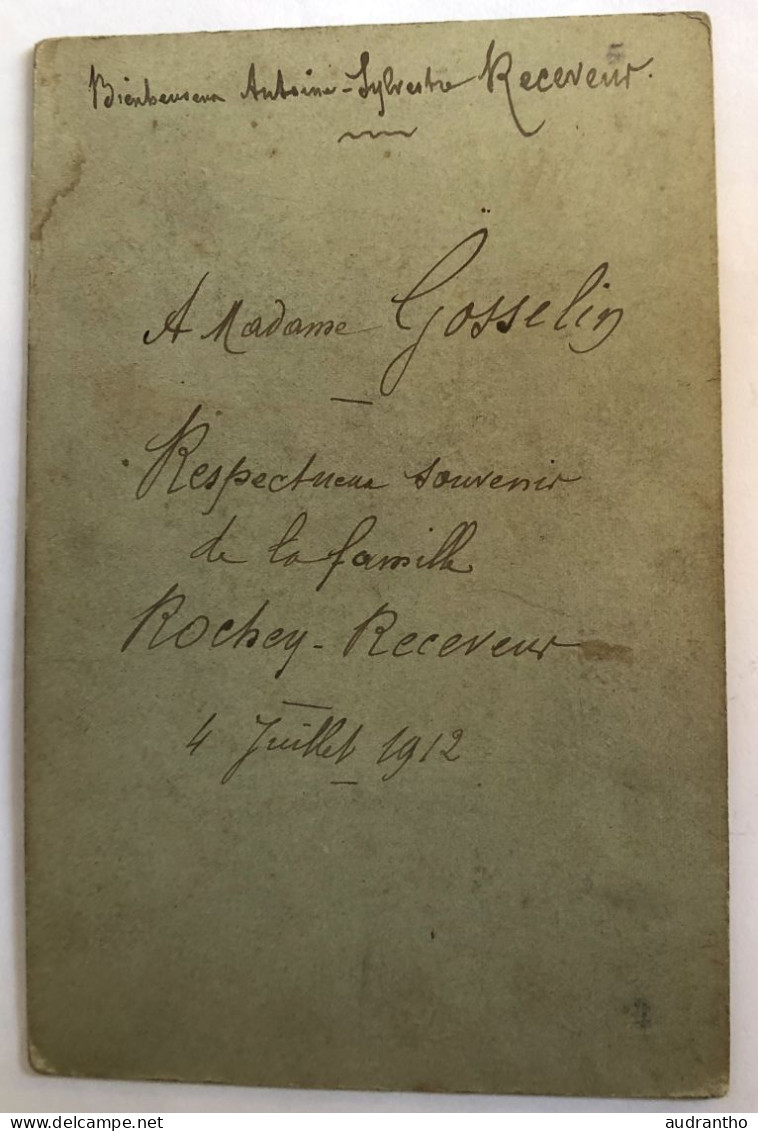 Bienheureux Antoine-Sylvestre Receveur.
A Madame Gosselin
Respectueux souvenir
de la famille
Rochey-Receveur
4 Juillet 1912
delcampe.net
audrantho